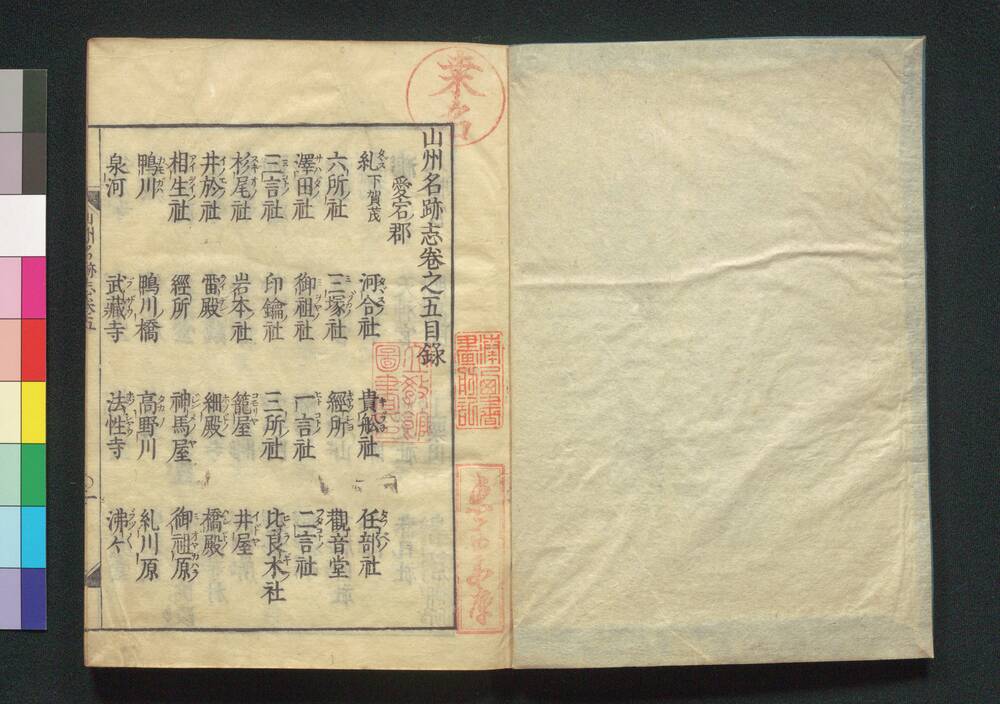 山州名跡志卷之五目録
愛宕郡
糺 下賀茂 河合社 貴舩社 任部社
六所社 三塚社 經所 觀音堂
澤田社 御祖社 一言社 二言社
三言社 印鑰社 三所社 比良木社
杉尾社 岩本社 籠屋 井屋
井於社 雷殿 細殿 橋殿
相生社 經所 神馬屋 御祖原
鴨川 鴨川橋 高野川 糺川原
泉河 武藏寺 法性寺
山州名跡志卷五